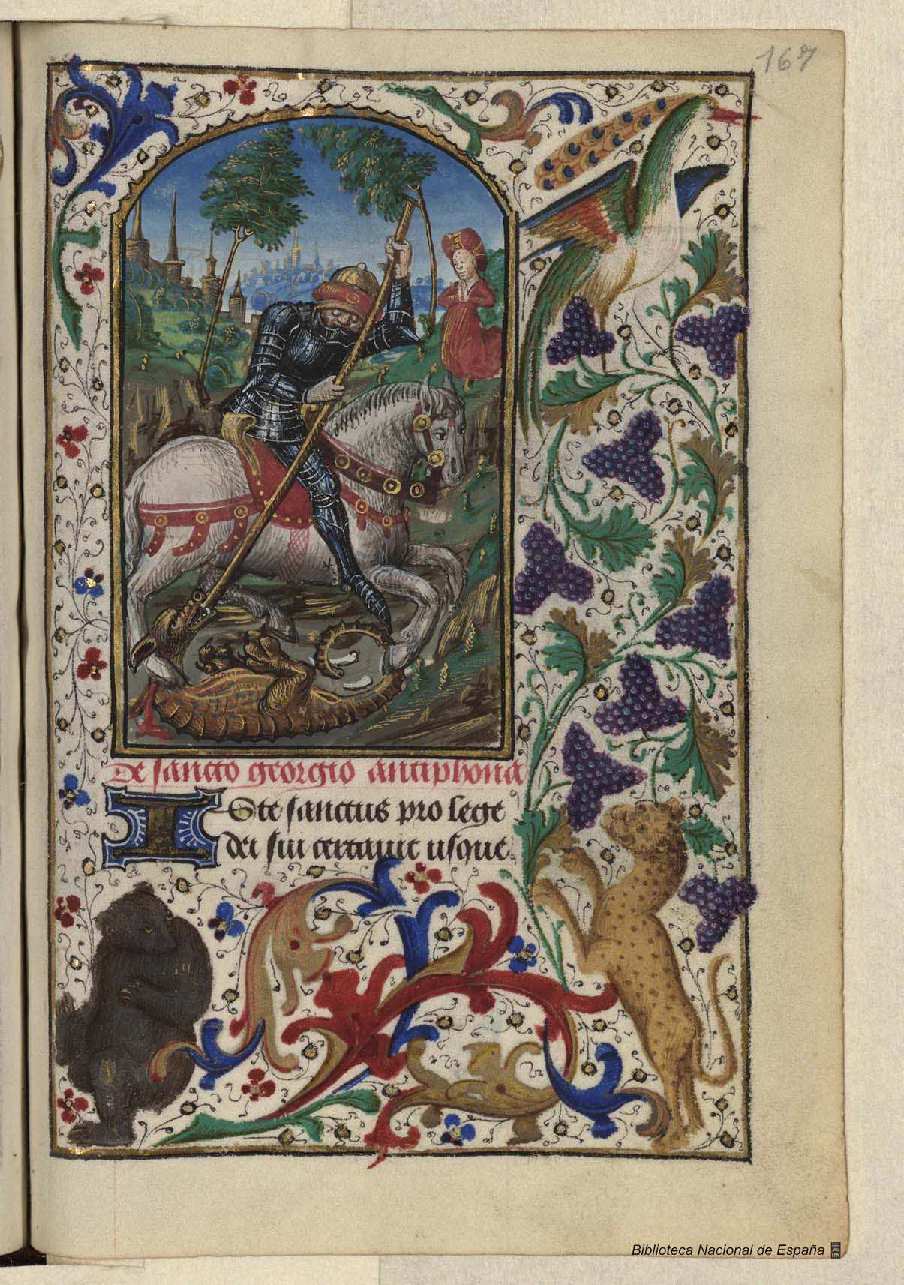 167
De sancto georgio antiphona
Iste sanctus pro lege
dei sui certauit usque.
Biblioteca Nacional de España